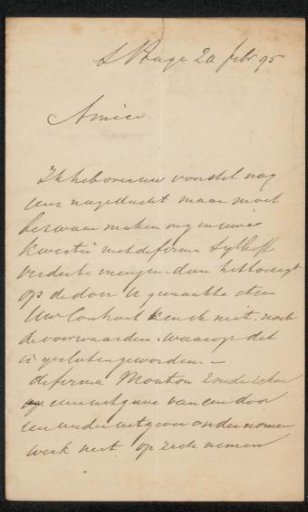 s Hage 20 febr 95
Amice
Ik heb over uw voorstel nog
eens nagedacht maar moet
bezwaar maken mij in uwe
kwestie met de firma Sijthoff
verder te mengen dan het
op de door U gemaakte
Uw Contract ken ik niet, noch
de voorwaarden waarop dit
is gesloten geworden. —
de firma Mouton zou zeker
op eene uitgave van een door
een ander uitgever ondernomen
werk niet op zich nemen